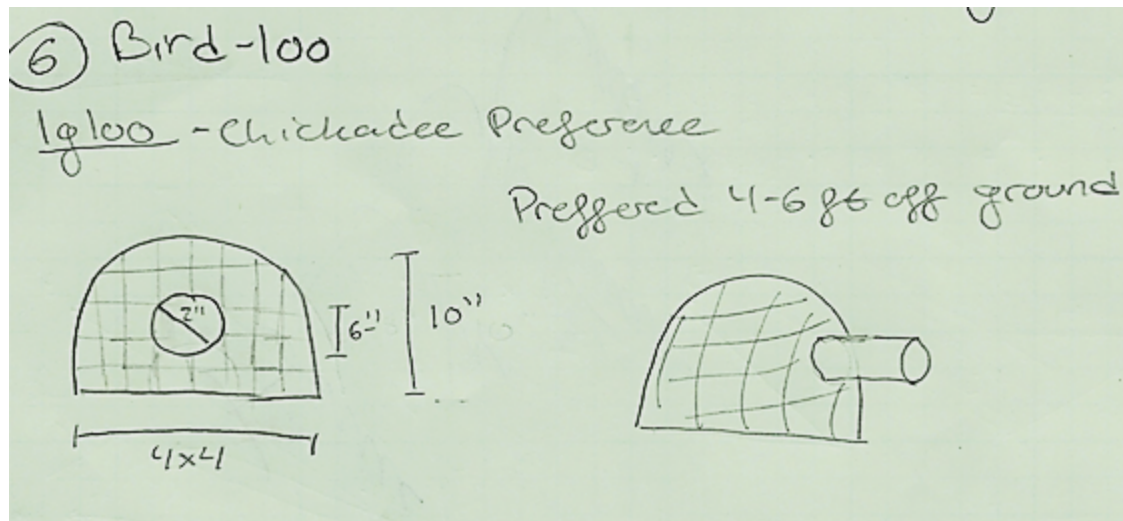 6 Bird-loo
Igloo - Chickadee Preference
Preffered 4-6 ft off ground
2"
6"
10"
4x4